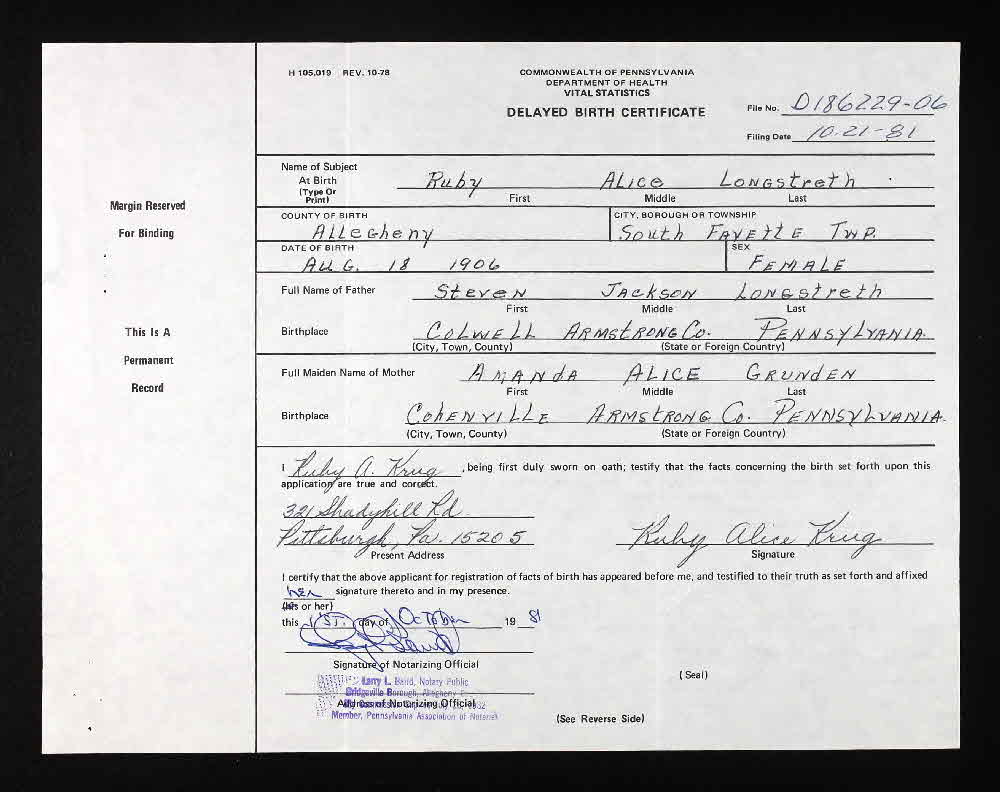 H 105.019 REV. 10-78
COMMONWEALTH OF PENNSYLVANIA
DEPARTMENT OF HEALTH
VITAL STATISTICS
DELAYED BIRTH CERTIFICATE
File No. D186229-06
Filing Date 10-21-81
Margin Reserved
For Binding
This Is A
Permanent
Record
Name of Subject
At Birth
(Type Or
Print)
Ruby Alice Longstreth
First Middle Last
COUNTY OF BIRTH CITY, BOROUGH OR TOWNSHIP
Allegheny South Fayette Twp.
DATE OF BIRTH SEX
Aug. 18 1906 Female
Full Name of Father Steven Jackson Longstreth
First Middle Last
Birthplace Colwell Armstrong Co. Pennsylvania
(City, Town, County) (State or Foreign Country)
Full Maiden Name of Mother Amanda Alice Grunden
First Middle Last
Birthplace Cohenville Armstrong Co. Pennsylvania
(City, Town, County) (State or Foreign Country)
I Ruby A. Krug, being first duly sworn on oath; testify that the facts concerning the birth set forth upon this
application are true and correct.
321 Shadyhill Rd.
Pittsburgh, Pa. 15205 Ruby Alice Krug
Present Address Signature
I certify that the above applicant for registration of facts of birth has appeared before me, and testified to their truth as set forth and affixed
her signature thereto and in my presence.
(his or her)
this 1st. day of October 19 81
Signature of Notarizing Official
(Seal)
Larry L. Baird, Notary Public
Bridgeville Borough, Allegheny
Address of Notarizing Official
Member, Pennsylvania Association of Notaries
(See Reverse Side)